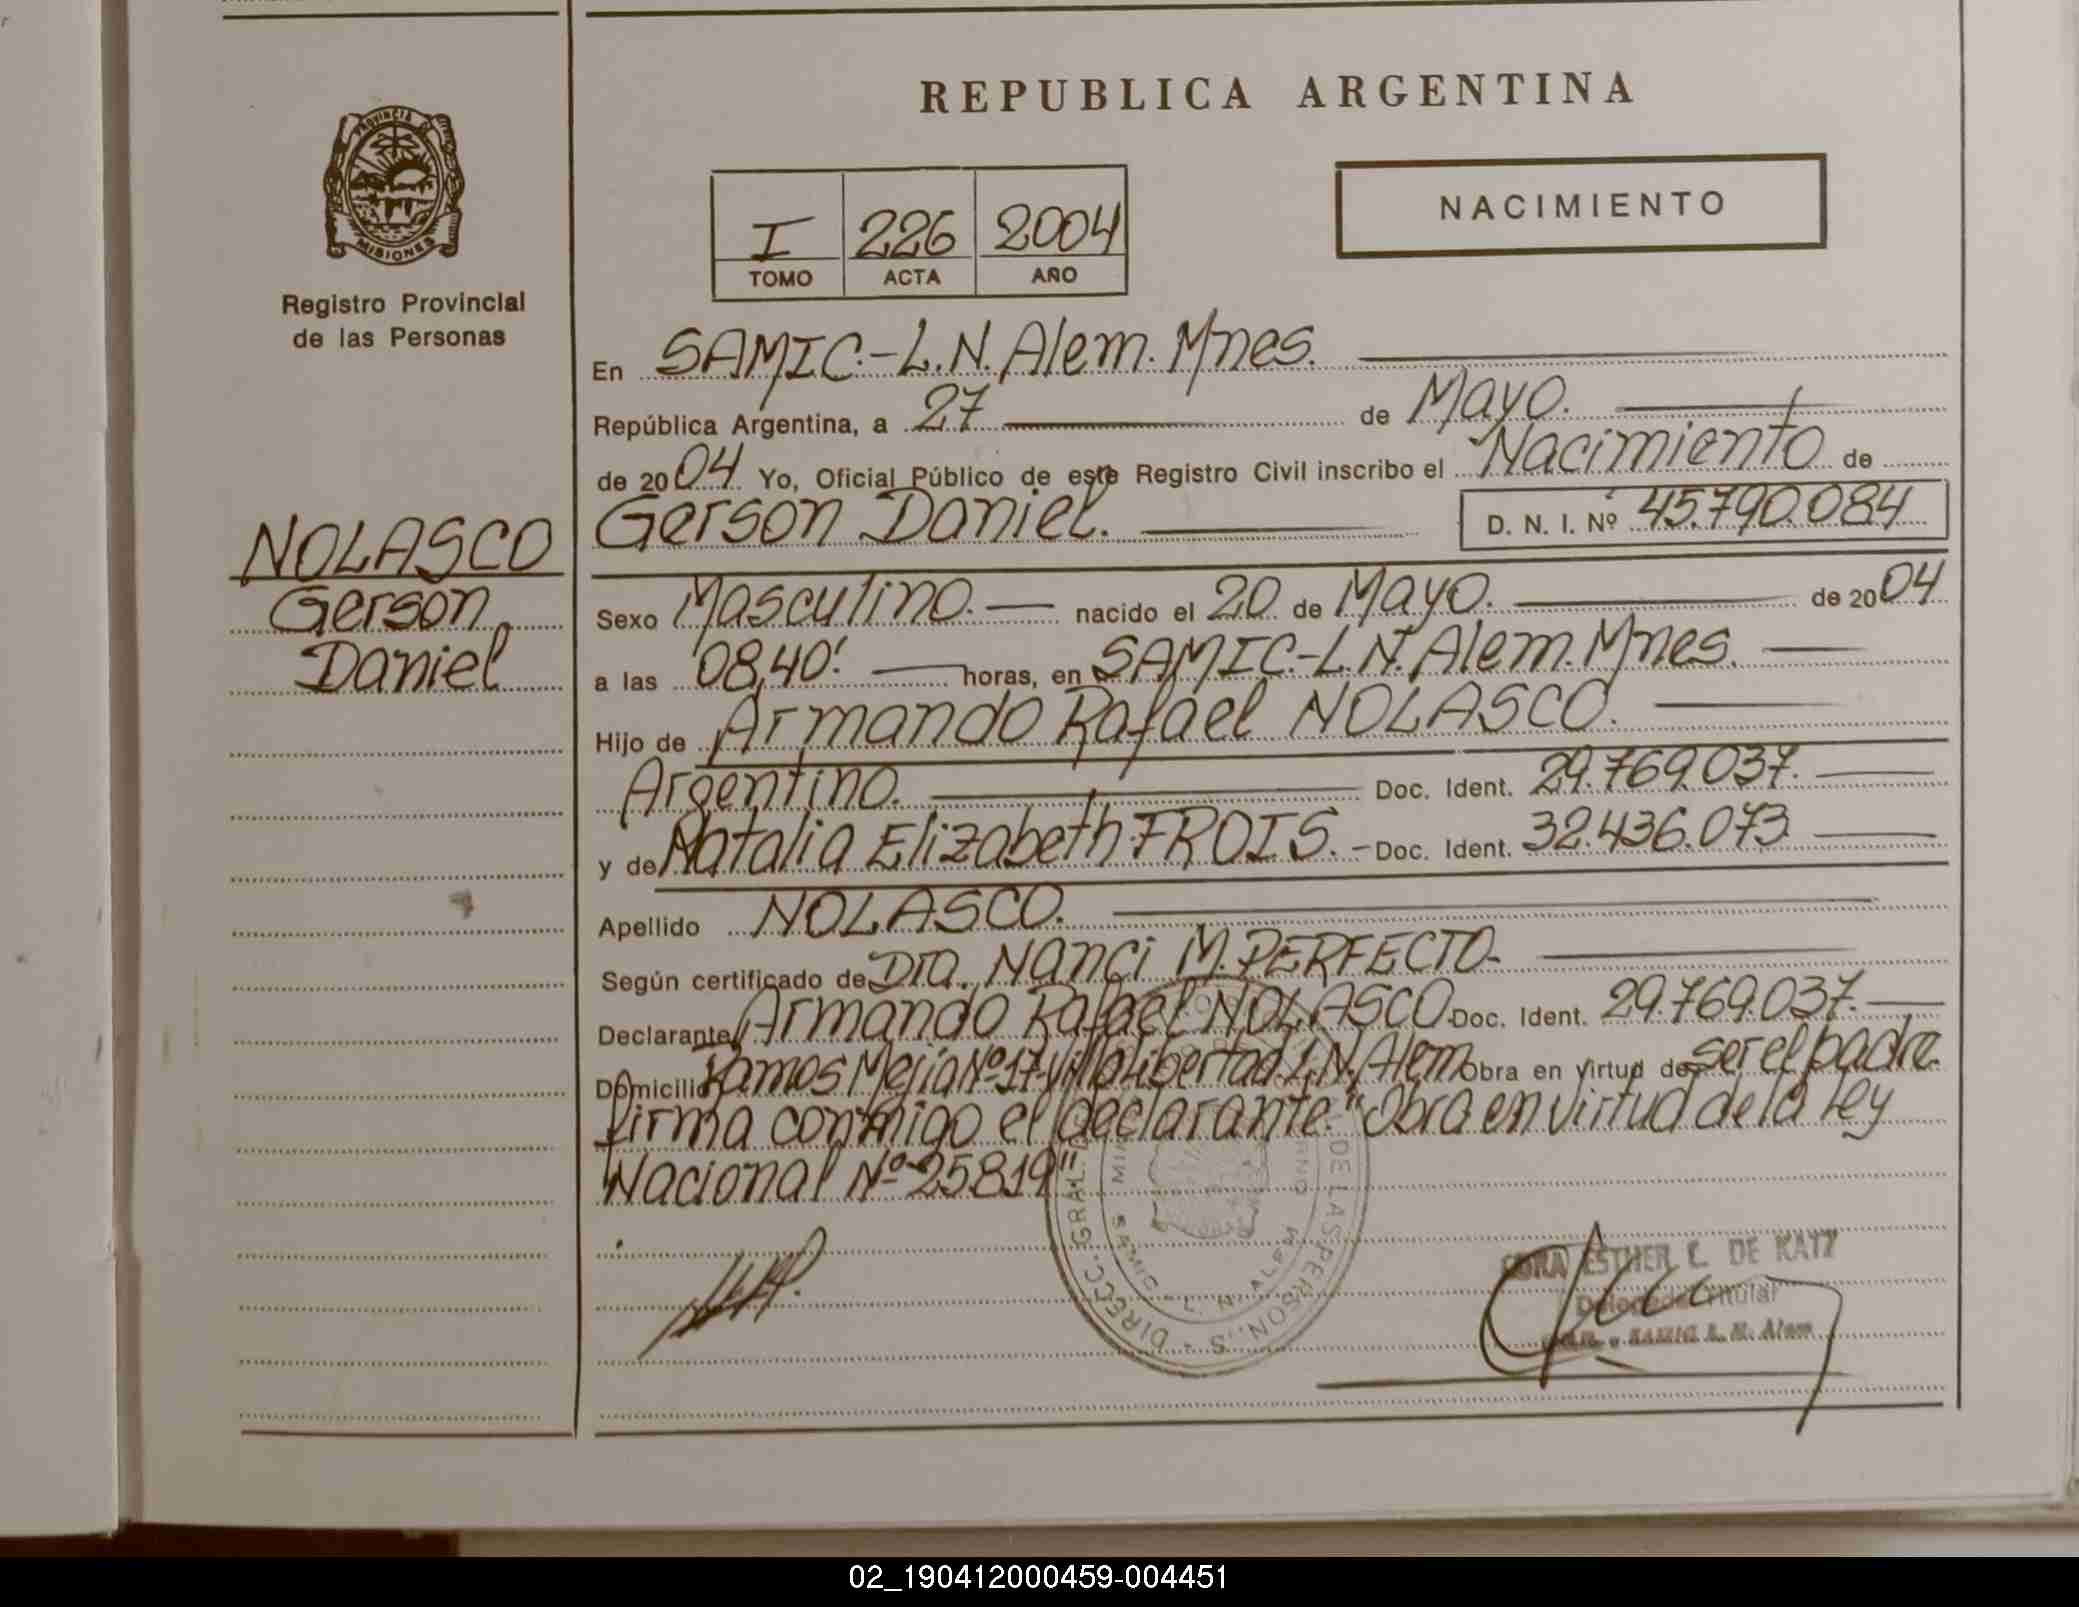 REPUBLICA ARGENTINA
PROVINCIA DE
MISIONES
Registro Provincial
de las Personas
I 226 2004
TOMO ACTA AÑO
NACIMIENTO
En SAMIC.-L.N.Alem.Mnes.
República Argentina, a 27 de Mayo.
de 2004 Yo, Oficial Público de este Registro Civil inscribo el Nacimiento de
Gerson Daniel. D. N. I. Nº 45.790.084
NOLASCO
Gerson
Daniel
Sexo Masculino.- nacido el 20 de Mayo. de 2004
a las 08,40! horas, en SAMIC.-L.N.Alem.Mnes.
Hijo de Armando Rafael NOLASCO.
Argentino. Doc. Ident. 29.769.037.
y de Natalia Elizabeth FROIS.- Doc. Ident. 32.436.073
Apellido NOLASCO.
Según certificado de Dra. Nanci M. PERFECTO-
Declarante Armando Rafael NOLASCO Doc. Ident. 29.769.037.
Domicilio Ramos Mejía Nº17-Villa Libertad L.N.Alem Obra en virtud de ser el padre.
firma conmigo el declarante."Obra en virtud de la Ley
Nacional Nº 25819"
DIRECC. GRAL. DE LAS PERSONAS
SAMIC - L. N. ALEM
ESTHER C. DE KATZ
Titular
SAMIC L. N. Alem
02_190412000459-004451